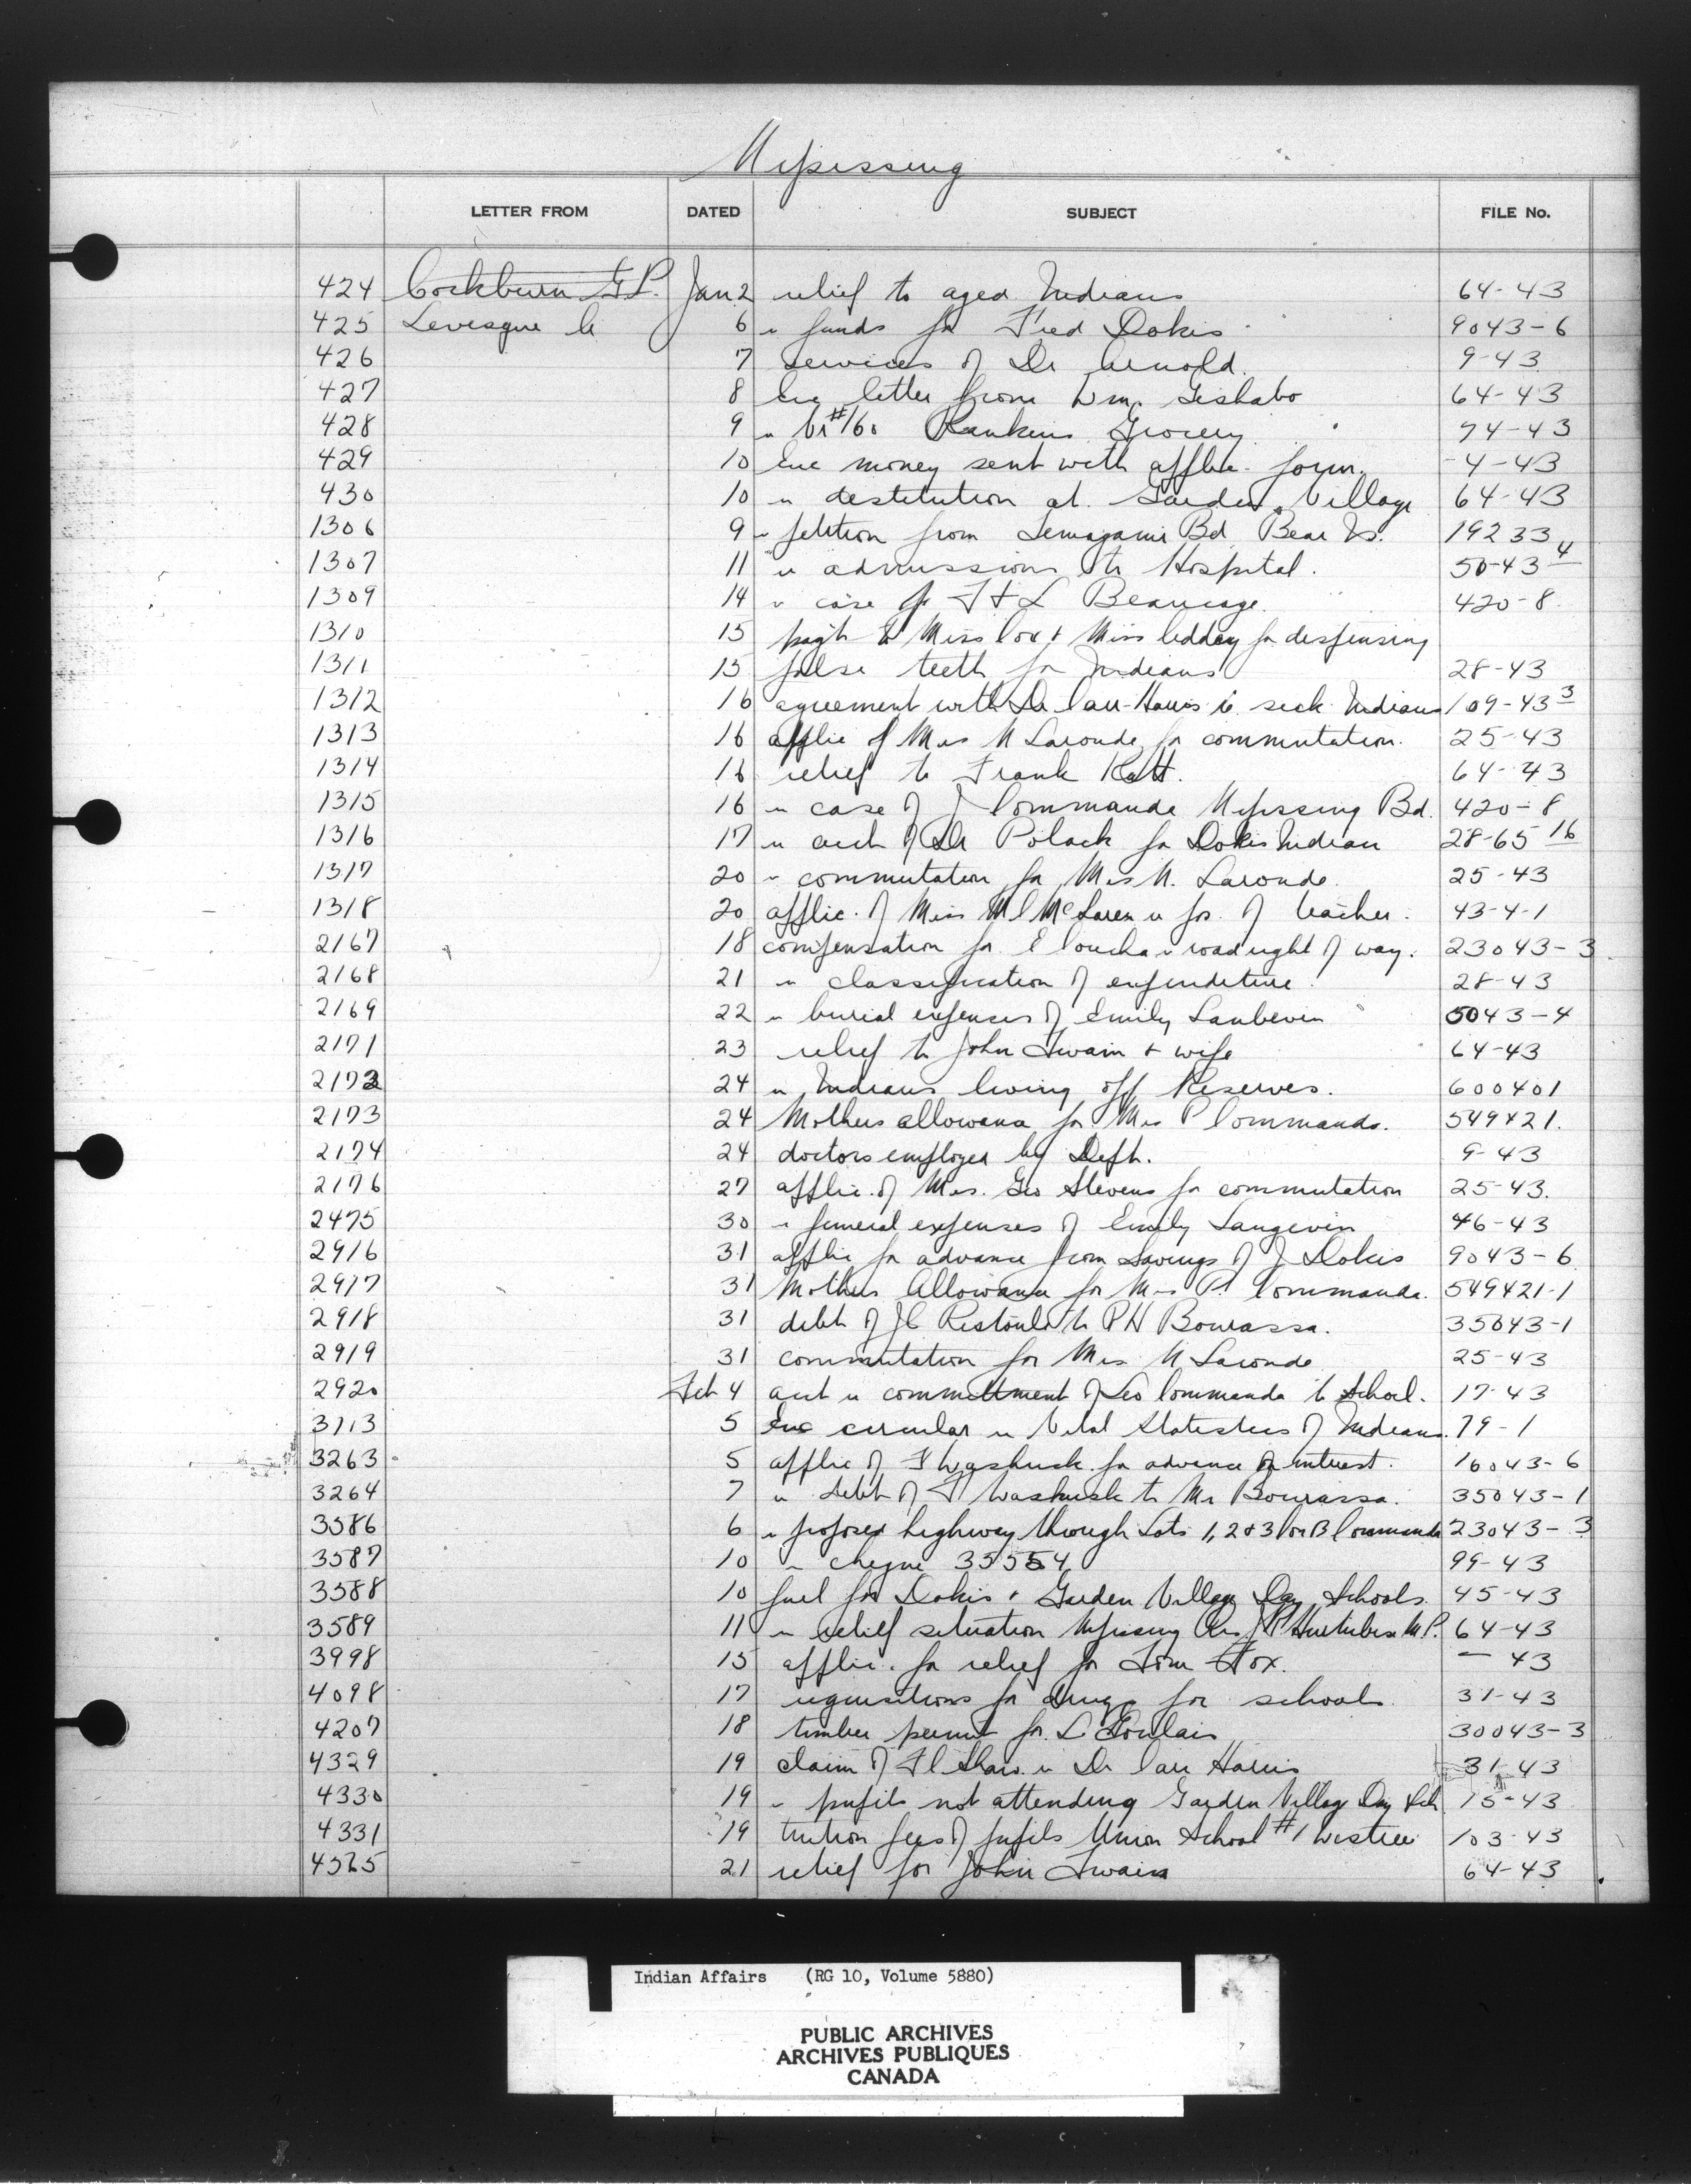 Nipissing
LETTER FROM DATED SUBJECT FILE No.
424 Cockburn G.P. Jan 2 relief to aged Indians 64-43
425 Levesque C 6 " funds for Fred Dokis 9043-6
426 7 services of Dr Arnold. 9-43
427 8 Enc letter from Wm. Goshabo 64-43
428 9 " Vr #160 Rankins Grocery 74-43
429 10 Enc money sent with applic. form. 4-43
430 10 " destitution at Garden Village 64-43
1306 9 " petition from Temagami Bd Bear Is. 19233
1307 11 " admissions to Hospital. 50-43 4
1309 14 " case of F & L Beaucage. 420-8
1310 15 pay't to Miss Cox & Miss Leddy for dispensing
1311 15 false teeth for Indians 28-43
1312 16 agreement with Dr Carr-Harris re sick Indians 109-43 3
1313 16 applic of Mrs N Laronde for commutation. 25-43
1314 16 relief to Frank Katt. 64-43
1315 16 " case of J Commanda Nipissing Bd. 420-8
1316 17 " acct of Dr Polack for Dokis Indian 28-65 16
1317 20 " commutation for Mrs N. Laronde. 25-43
1318 20 applic. of Miss M C McLaren " pos. of teacher. 43-4-1
2167 18 compensation for E Couchai " road right of way. 23043-3
2168 21 " classification of expenditure 28-43
2169 22 " burial expenses of Emily Lanbevin 5043-4
2171 23 relief to John Twain & wife 64-43
2172 24 " Indians living off Reserves. 600401
2173 24 Mothers allowance for Mrs P Commanda. 549421.
2174 24 doctors employed by Dept. 9-43
2176 27 applic. of Mrs. Geo Stevens for commutation 25-43.
2475 30 " funeral expenses of Emily Langevin 46-43
2916 31 applic for advance from Savings of J Dokis 9043-6
2917 31 Mothers Allowance for Mrs P. Commanda. 549421-1
2918 31 debt of J C Restoule to P H Bourassa. 35043-1
2919 31 commutation for Mrs N Laronde 25-43
2920 Feb 4 acct " committment of Leo Commanda to School. 17-43
3113 5 Enc circular " Vital Statistics of Indians. 79-1
3263 5 applic of F Washusk for advance on interest. 16043-6
3264 7 " debt of F Washusk to Mr Bourassa. 35043-1
3586 6 " proposed highway through Lots 1, 2 & 3 Con B Commanda 23043-3
3587 10 " cheque 35554 99-43
3588 10 fuel for Dokis & Garden Village Day Schools. 45-43
3589 11 " relief situation Nipissing Res J P Hurtubise M.P. 64-43
3998 15 applic. for relief for Tom Fox. — 43
4098 17 requisitions for drugs for schools 31-43
4207 18 timber permit for L Goulais 30043-3
4329 19 claim of F C Shaw " Dr Carr Harris 31-43
4330 19 " pupils not attending Garden Village Day Sch 15-43
4331 19 tuition fees of pupils Union School #1 Westree 103-43
4565 21 relief for John Twain 64-43
Indian Affairs (RG 10, Volume 5880)
PUBLIC ARCHIVES
ARCHIVES PUBLIQUES
CANADA